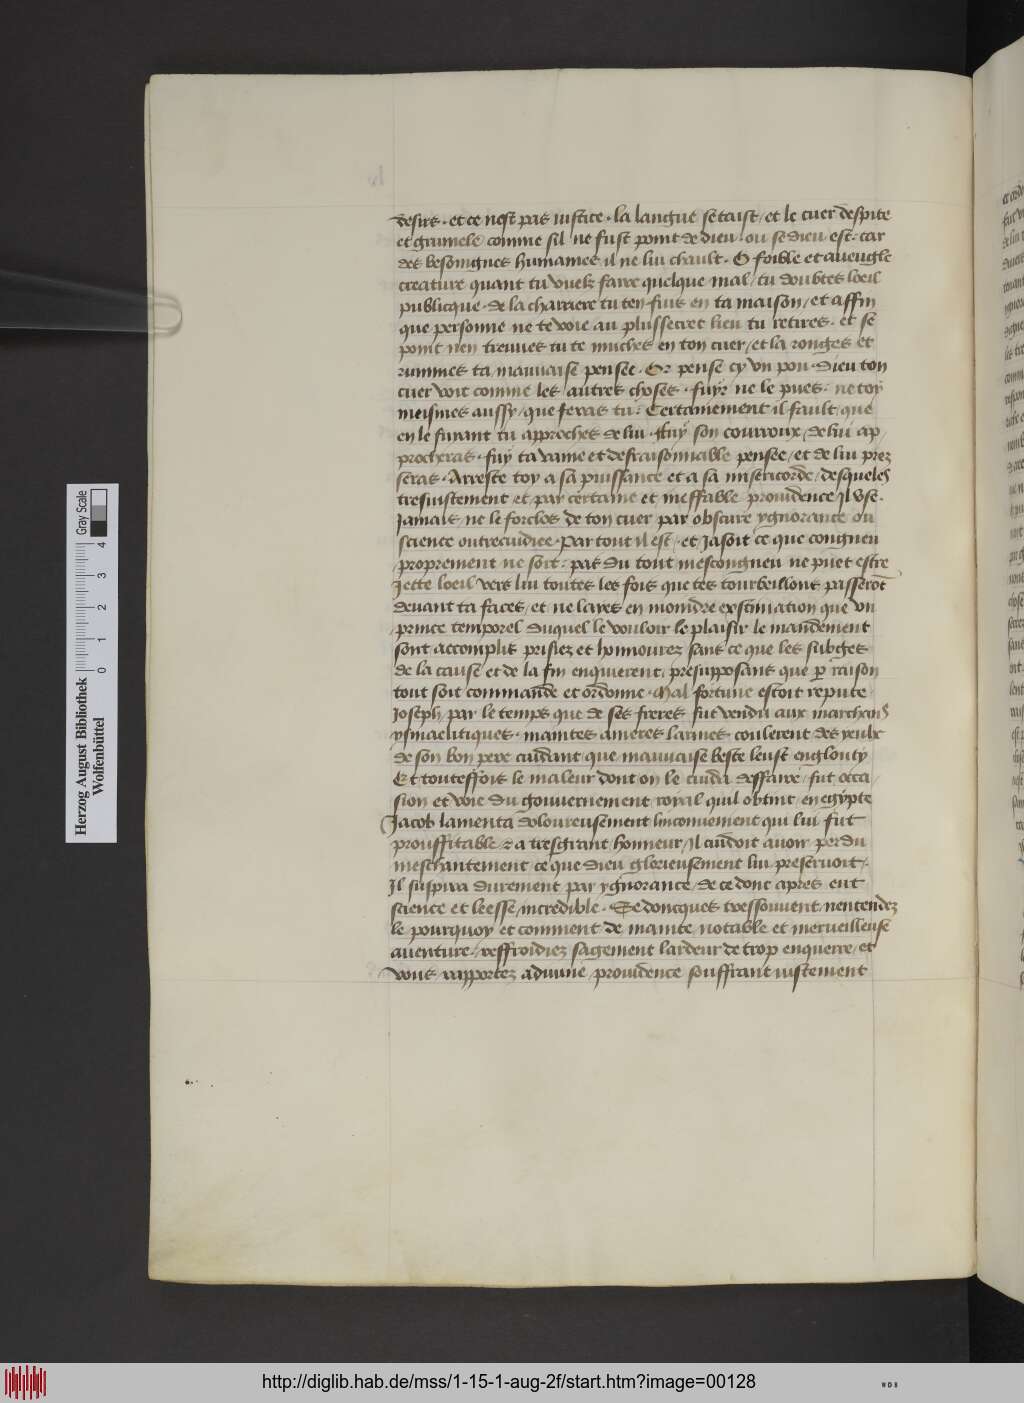 desirs · et ce nest pas iustice · la langue se taist / et le cuer despite
et grumele comme sil ne fust point de dieu ou se dieu est · car
des besoingnes humaines il ne lui chault · O foible et aueugle
creature quant tu vuelz faire quelque mal / tu doubtes loeil
publicque · de la charriere tu ten fuis en ta maison / et affin
que personne ne te voie au plussecret lieu tu retires · et se
point nen treuues tu te muches en ton cuer / et la ronges et
rumines ta mauuaise pensee · Or pense cy vn pou · Dieu ton
cuer voit comme les autres choses · fuyr ne le pues · ne toy
meismes aussy / que feras tu · Certainement il fault que
en le fuiant tu approches de lui · Fuy son courroux / de lui ap
procheras · fuy ta vaine et desraisonnable pensee / et de lui prez
seras · Arreste toy a sa puissance et a sa misericorde / desqueles
tresiustement et par certaine et ineffable prouidence il vse ·
Jamais ne le forclos de ton cuer par obscure ygnorance ou
science oultrecuidiee · Par tout il est · et Jasoit ce que congneu
proprement ne soit · pas du tout mescongneu ne puet estre
Jette loeil vers lui toutes les fois que tes tourbeillons passerōt
deuant ta faces / et ne layes en moindre exstimation que vn
prince temporel duquel le vouloir le plaisir le mandement
sont accomplis prisiez et honnourez sans ce que les subges
de la cause et de la fin enquierent / presupposans que p raison
tout soit commande et ordonne · Mal fortune estoit repute
Joseph / par le temps que de ses freres fut vendu aux marchans
ysmaelitiques · maintes ameres larmes coulerent des yeulx
de son bon pere cuidant que mauuaise beste leust englouty
Et touteffois le maleur dont on le cuida deffaire / fut occa
sion et voie du gouuernement roial quil obtint en egypte
Jacob lamenta doloureusement linconuenient qui lui fut
prouffitable & a tresgrant honneur / Il cuidoit auoir perdu
meschantement ce que dieu glorieusement lui preseruoit ·
Il suspira durement par ygnorance / de ce donc apres eut
science et leesse incredible · Se doncques tressouuent nentendez
le pourquoy et comment de mainte notable et merueilleuse
auenture / reffroidiez sagement lardeur de trop enquerre / et
vous rapportez a diuine prouidence souffrant iustement
Herzog August Bibliothek
Wolfenbüttel
0 1 2 3 4
Gray Scale
http://diglib.hab.de/mss/1-15-1-aug-2f/start.htm?image=00128
WDB